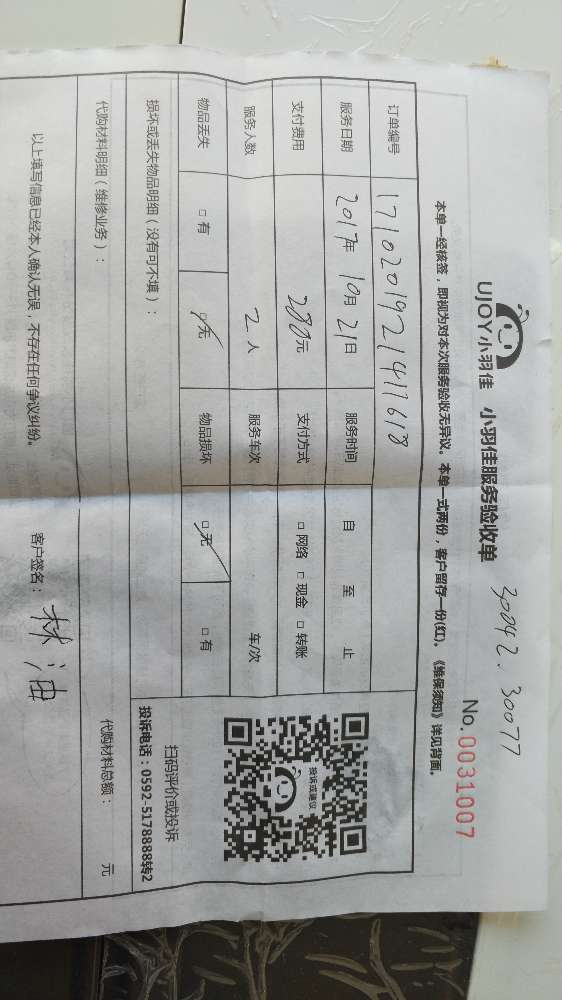 30042.30077
UJOY小羽佳 小羽佳服务验收单
No.0031007
本单一经核签，即视为对本次服务验收无异议。本单一式两份，客户留存一份(红)。《维保须知》详见背面。
订单编号 17102019214117618
服务日期 2017年10月21日 服务时间 自 至 止
支付费用 280元 支付方式 □网络 □现金 □转账
服务人数 2人 服务车次 车/次
物品丢失 □有 □无 物品损坏 □无 □有
投诉或建议
扫码评价或投诉
投诉电话：0592-5178888转2
损坏或丢失物品明细（没有可不填）：
代购材料明细（维修业务）： 代购材料总额： 元
以上填写信息已经本人确认无误，不存在任何争议纠纷。 客户签名：林